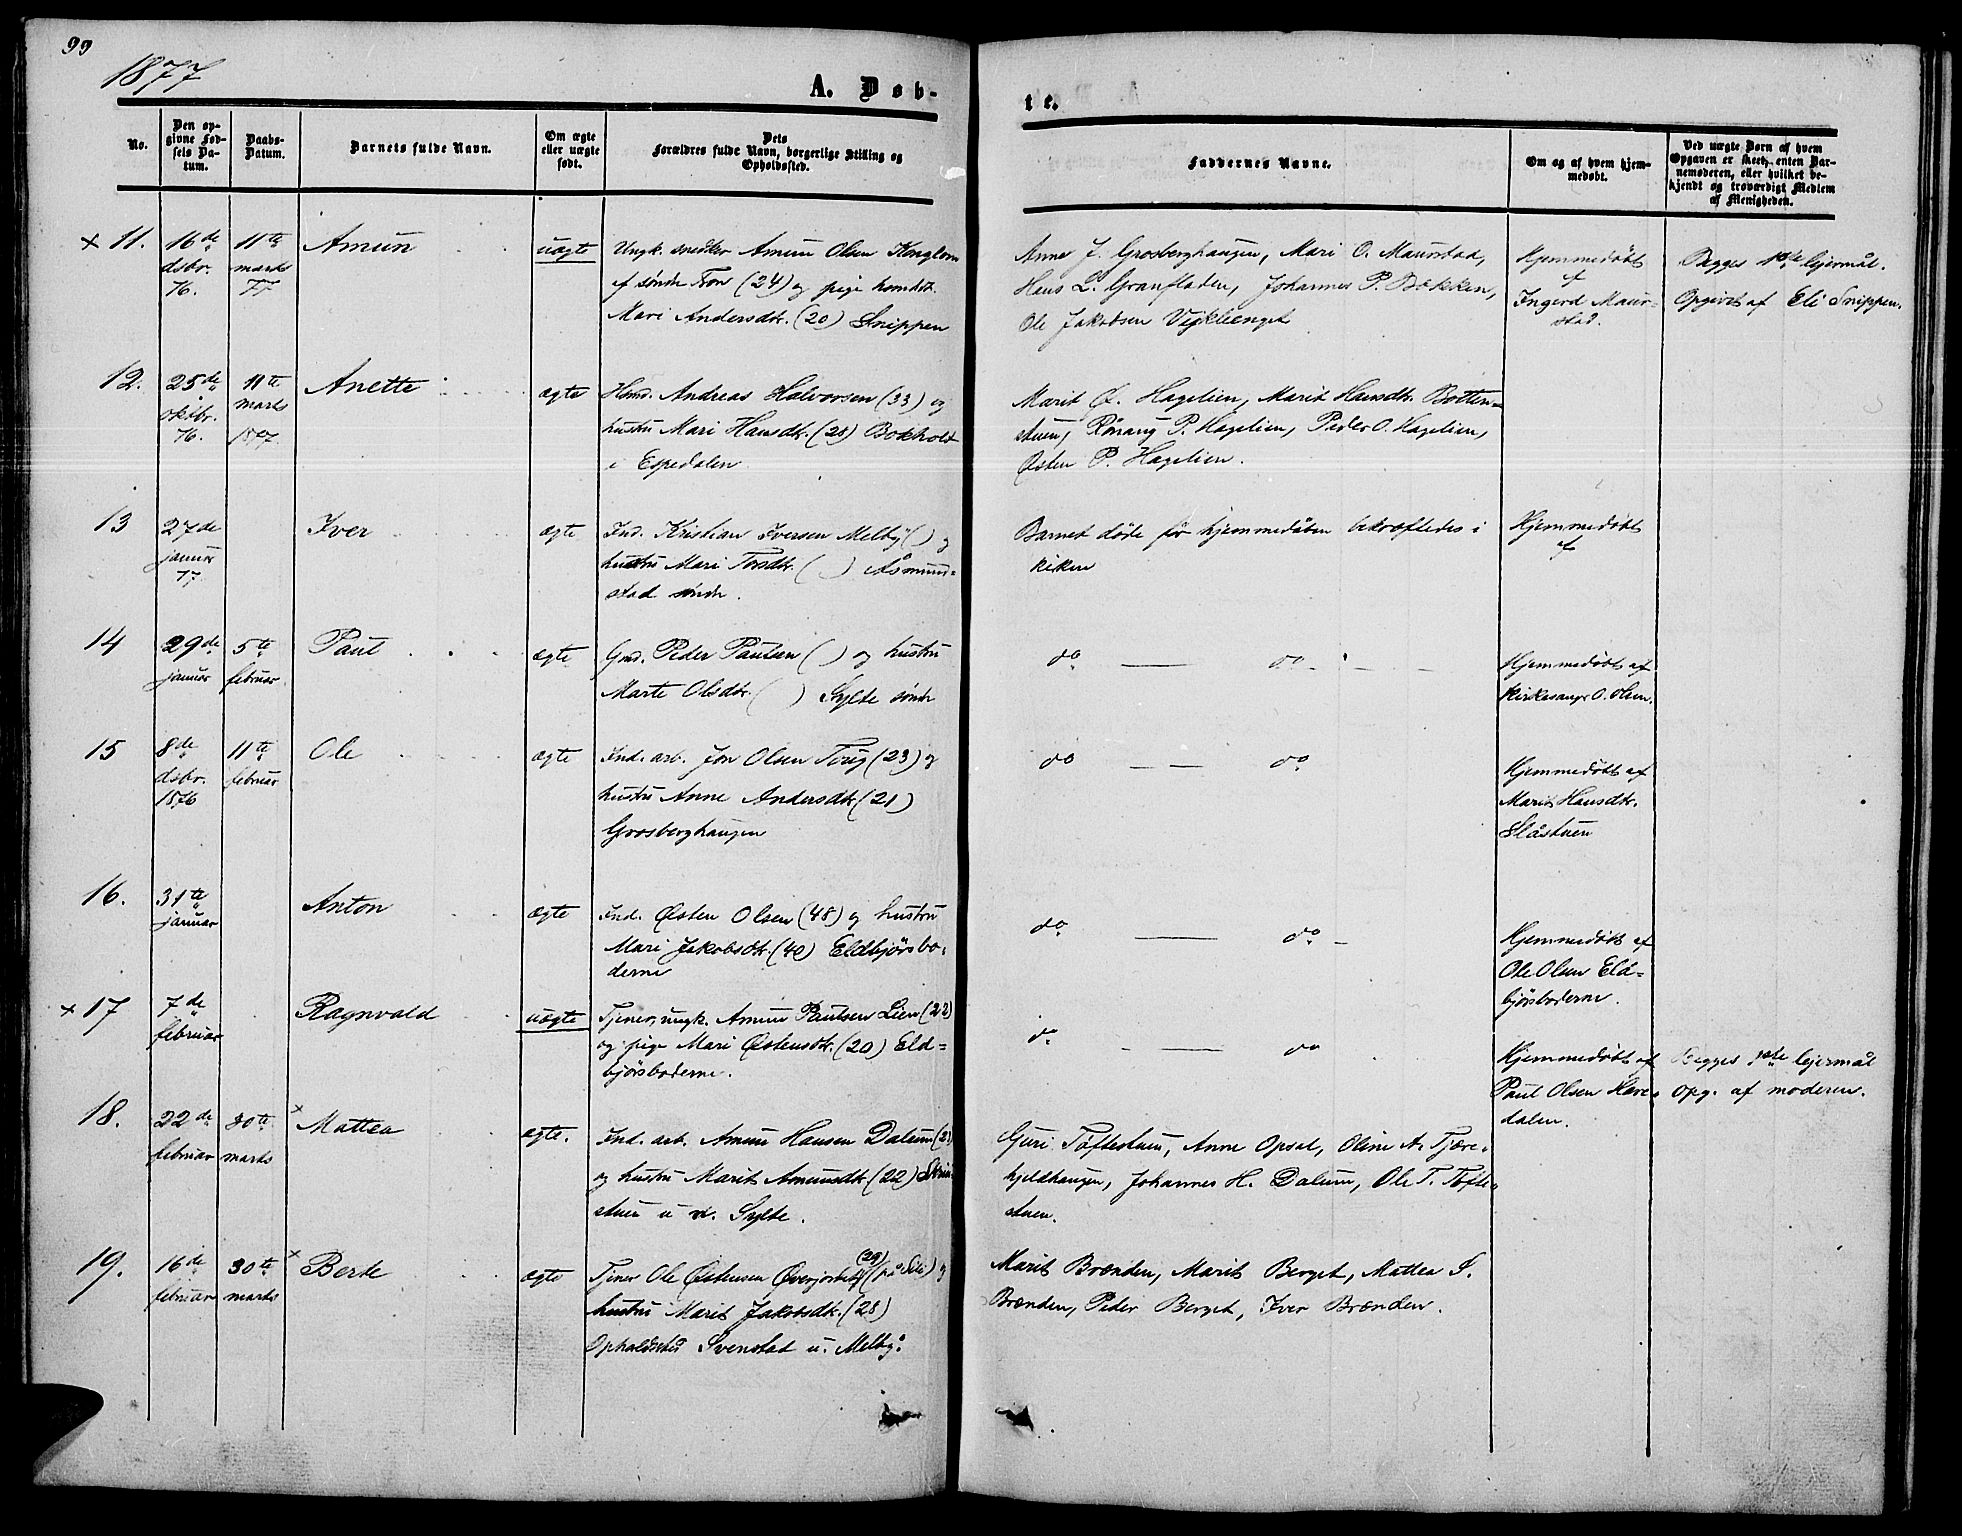 99
1877
A. Døb-
te.
No.
Den op-
givne Fød-
sels Da-
tum.
Daabs-
Datum.
Barnets fulde Navn.
Om ægte
eller uægte
født.
Dets
Forældres fulde Navn, borgerlige Stilling og
Opholdssted.
Faddernes Navne.
Om og af hvem hjem-
medøbt.
Ved uægte Børn af hvem
Opgaven er skeet, enten Bar-
nemoderen, eller hvilket be-
kjendt og troværdigt Medlem
af Menigheden.
× 11.
16de
dsbr.
76.
11te
marts
77
Amun
uægte
Ungk. snedker Amun Olsen Konglom
af søndre Fron (24) og pige homdtr.
Mari Andersdtr. (20) Snippen
Anne J. Grosberghaugen, Mari O. Maurstad,
Hans L. Granfladen, Johannes P. Bakken,
Ole Jakobsen Viklænget
Hjemmedøbt
af
Ingerd Maur-
stad.
Begges 1ste lejermål.
Opgivet af Eli Snippen.
12.
25de
oktbr.
76.
11te
marts
1877.
Anette
ægte
Hmd. Andreas Halvorsen (33) og
hustru Mari Hansdtr. (28) Bokholt
i Espedalen.
Marit Ø. Hagelien, Marit Hansdtr. Botten-
stuen, Rønaug P. Hagelien, Peder O. Hagelien,
Østen P. Hagelien.
13
27de
januar
77
Iver
ægte
Ind. Kristian Iversen Melby ( ) og
hustru Mari Torsdtr. ( ) Åsmund-
stad søndre.
Barnet døde før hjemmedåben bekræftedes i
kirken
Hjemmedøbt
af
14
29de
januar
5te
februar
Paul
ægte
Gmd. Peder Paulsen ( ) og hustru
Marte Olsdtr. ( ) Sylte søndre
do — do - - -
Hjemmedøbt af
kirkesanger O. Olsen.
15
8de
dsbr.
1876
11te
februar
Ole
ægte
Ind. arb. Jon Olsen Forig (23) og
hustru Anne Andersdtr. (21)
Grosberghaugen
do — — do
Hjemmedøbt af
Marit Hansdtr.
Slåstuen
16.
31te
januar
Anton
ægte
Ind. Østen Olsen (48) og hustru
Mari Jakobsdtr. (40) Eldbjørsbo-
derne
do — do -
Hjemmedøbt af
Ole Olsen Eld-
bjørsboderne.
× 17
7de
februar
Ragnvald
uægte
Tjener, ungk. Amun Paulsen Lien (22)
og pige Mari Østensdtr. (20) Eld-
bjørsboderne.
do - — do
Hjemmedøbt af
Paul Olsen
dalen.
Begges 1ste lejermål
opg. af moderen.
18.
22de
februar
30te
marts
× Mattea
ægte.
Ind. arb. Amun Hansen Dalum
og hustru Marit Amundsdtr. (22)
stuen u. n. Sylte.
Guri Tøftestuen, Anne Opsal, Oline A. Tjøre-
kjeldhaugen, Johannes H. Dalum, Ole T. Tøfte-
stuen.
19.
16de
februar
30te
marts
× Berte
ægte
(29)
Tjener Ole Østensen Øverjordet (på Sele) og
hustru Marit Jakobsdtr. (28)
Opholdssted Svenstad u. Melby.
Marit Brænden, Marit Berget, Mattea S.
Brænden, Peder Berget, Iver Brænden.